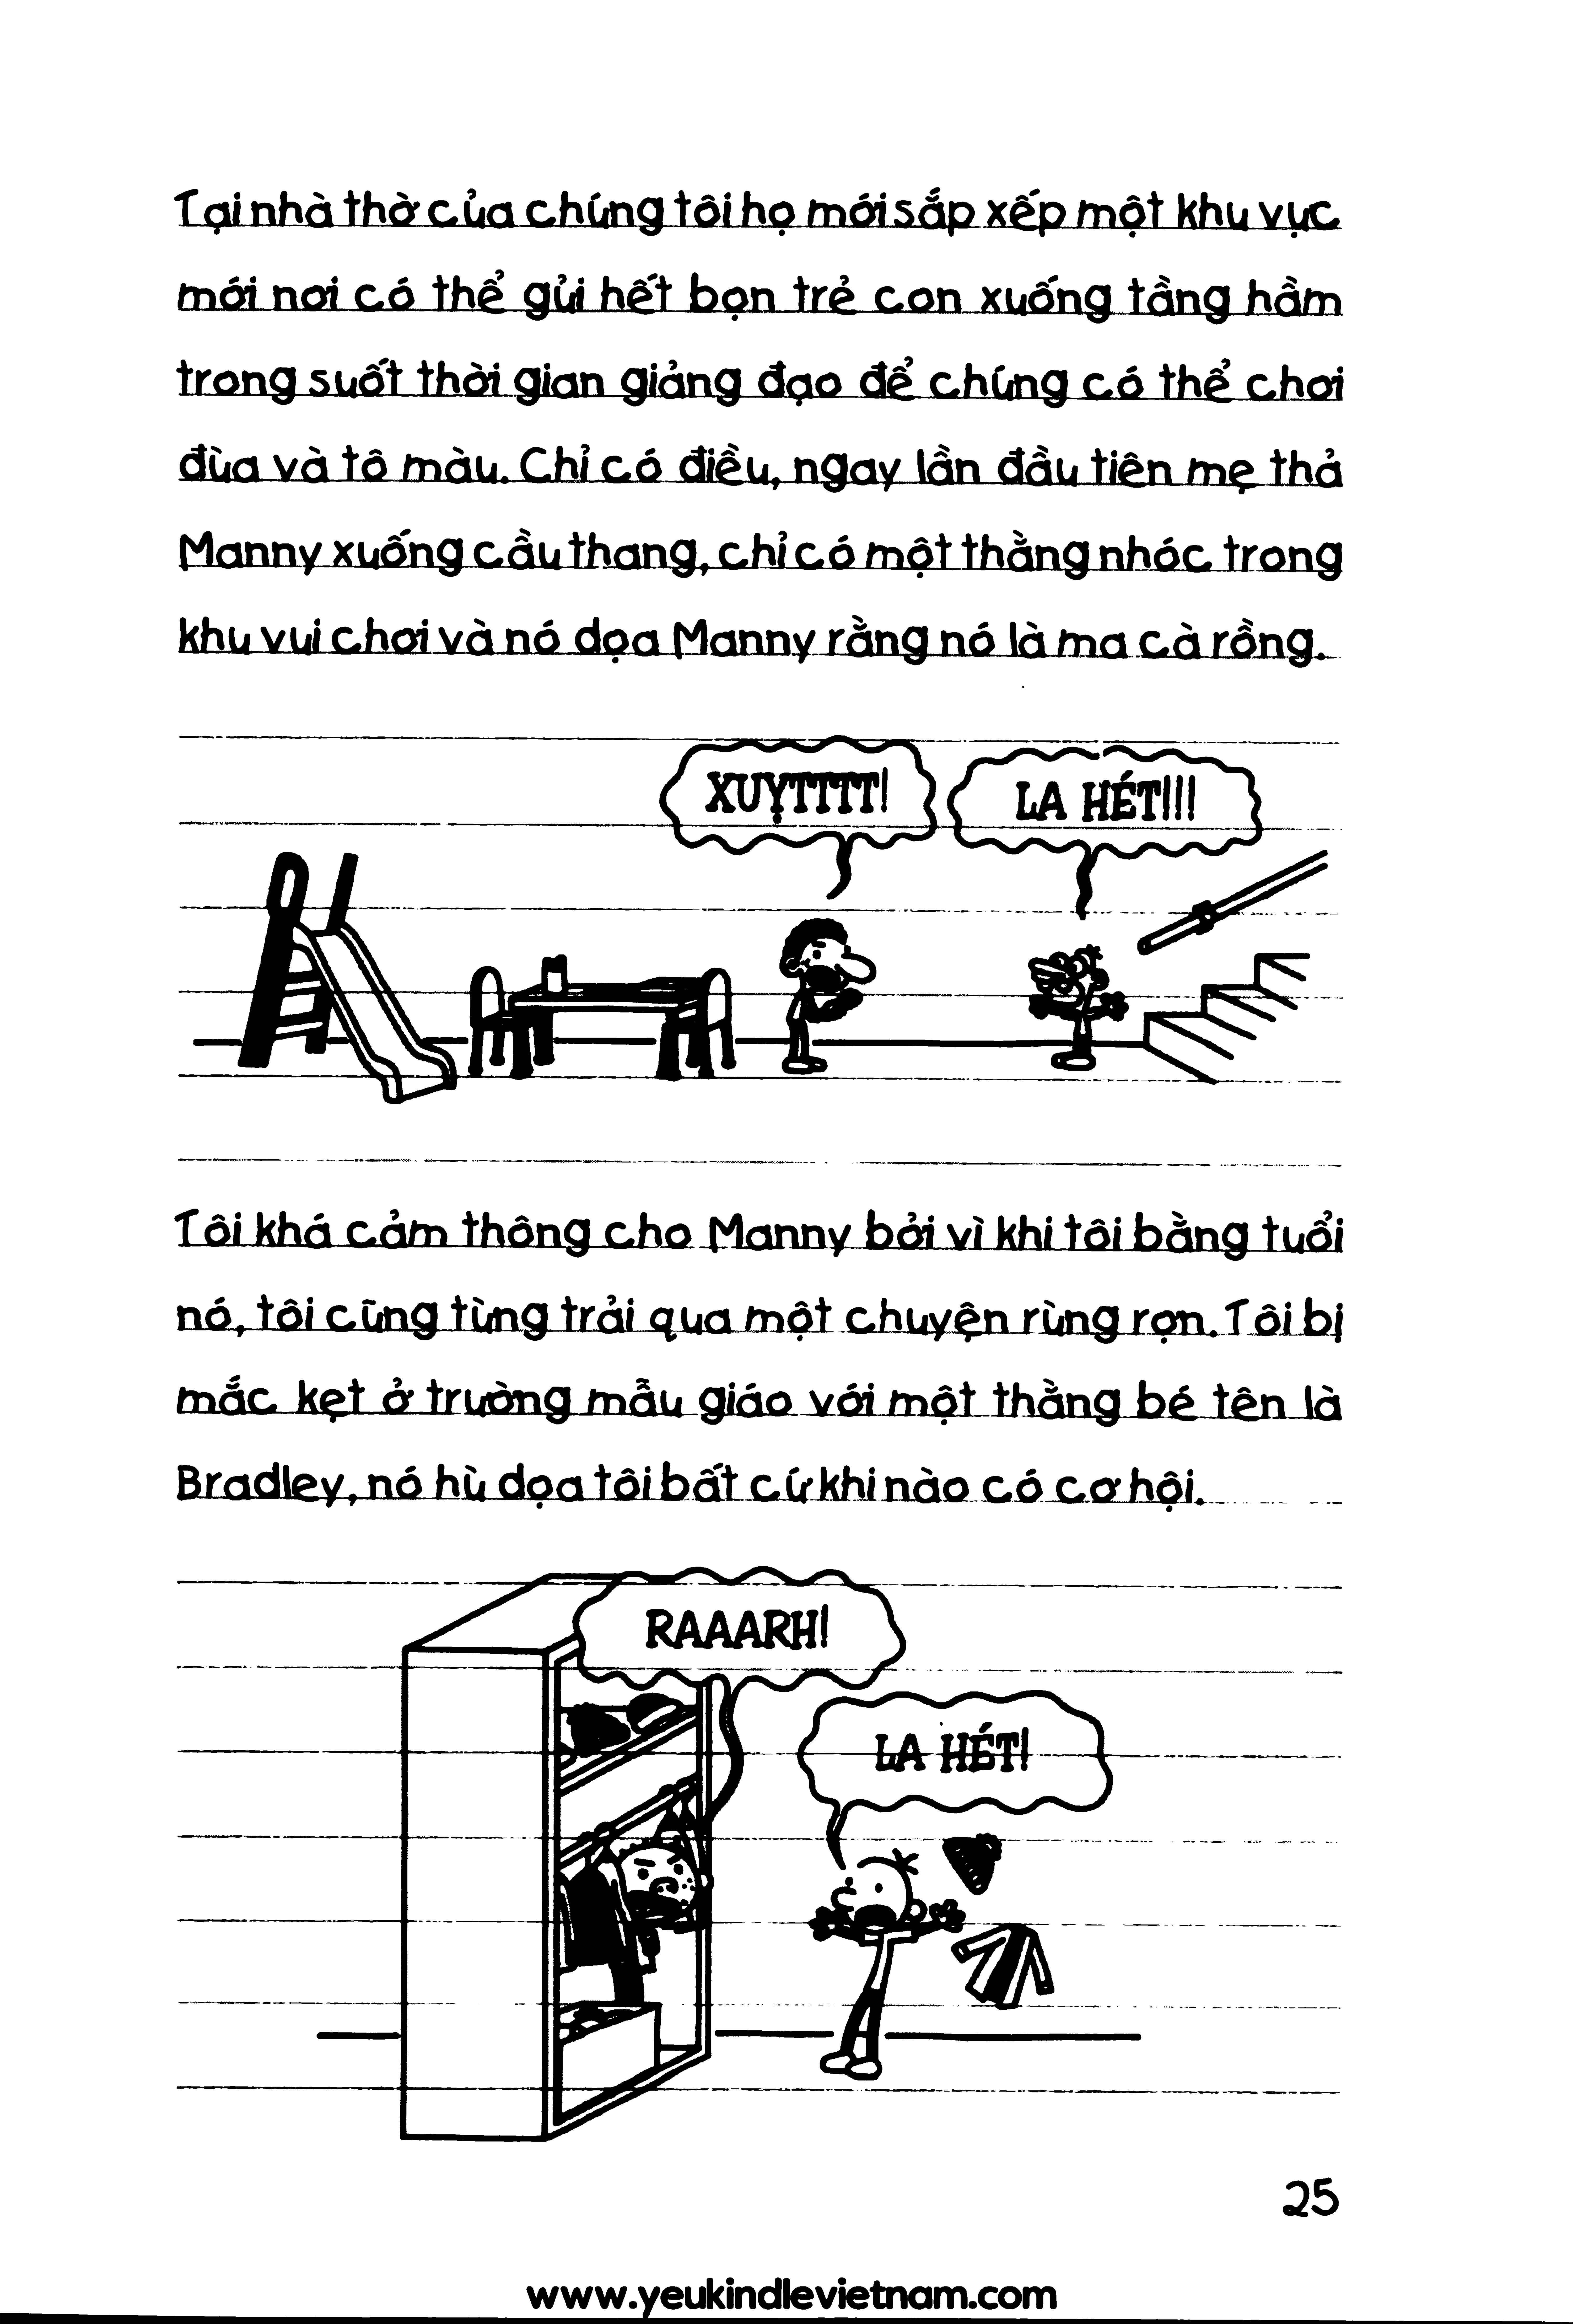 Tại nhà thờ của chúng tôi họ mới sắp xếp một khu vực
mới nơi có thể gửi hết bọn trẻ con xuống tầng hầm
trong suốt thời gian giảng đạo để chúng có thể chơi
đùa và tô màu. Chỉ có điều, ngay lần đầu tiên mẹ thả
Manny xuống cầu thang, chỉ có một thằng nhóc trong
khu vui chơi và nó dọa Manny rằng nó là ma cà rồng.
XUỴTTTT!
LA HÉT!!!
Tôi khá cảm thông cho Manny bởi vì khi tôi bằng tuổi
nó, tôi cũng từng trải qua một chuyện rùng rợn. Tôi bị
mắc kẹt ở trường mẫu giáo với một thằng bé tên là
Bradley, nó hù dọa tôi bất cứ khi nào có cơ hội.
RAAARH!
LA HÉT!
25
www.yeukindlevietnam.com